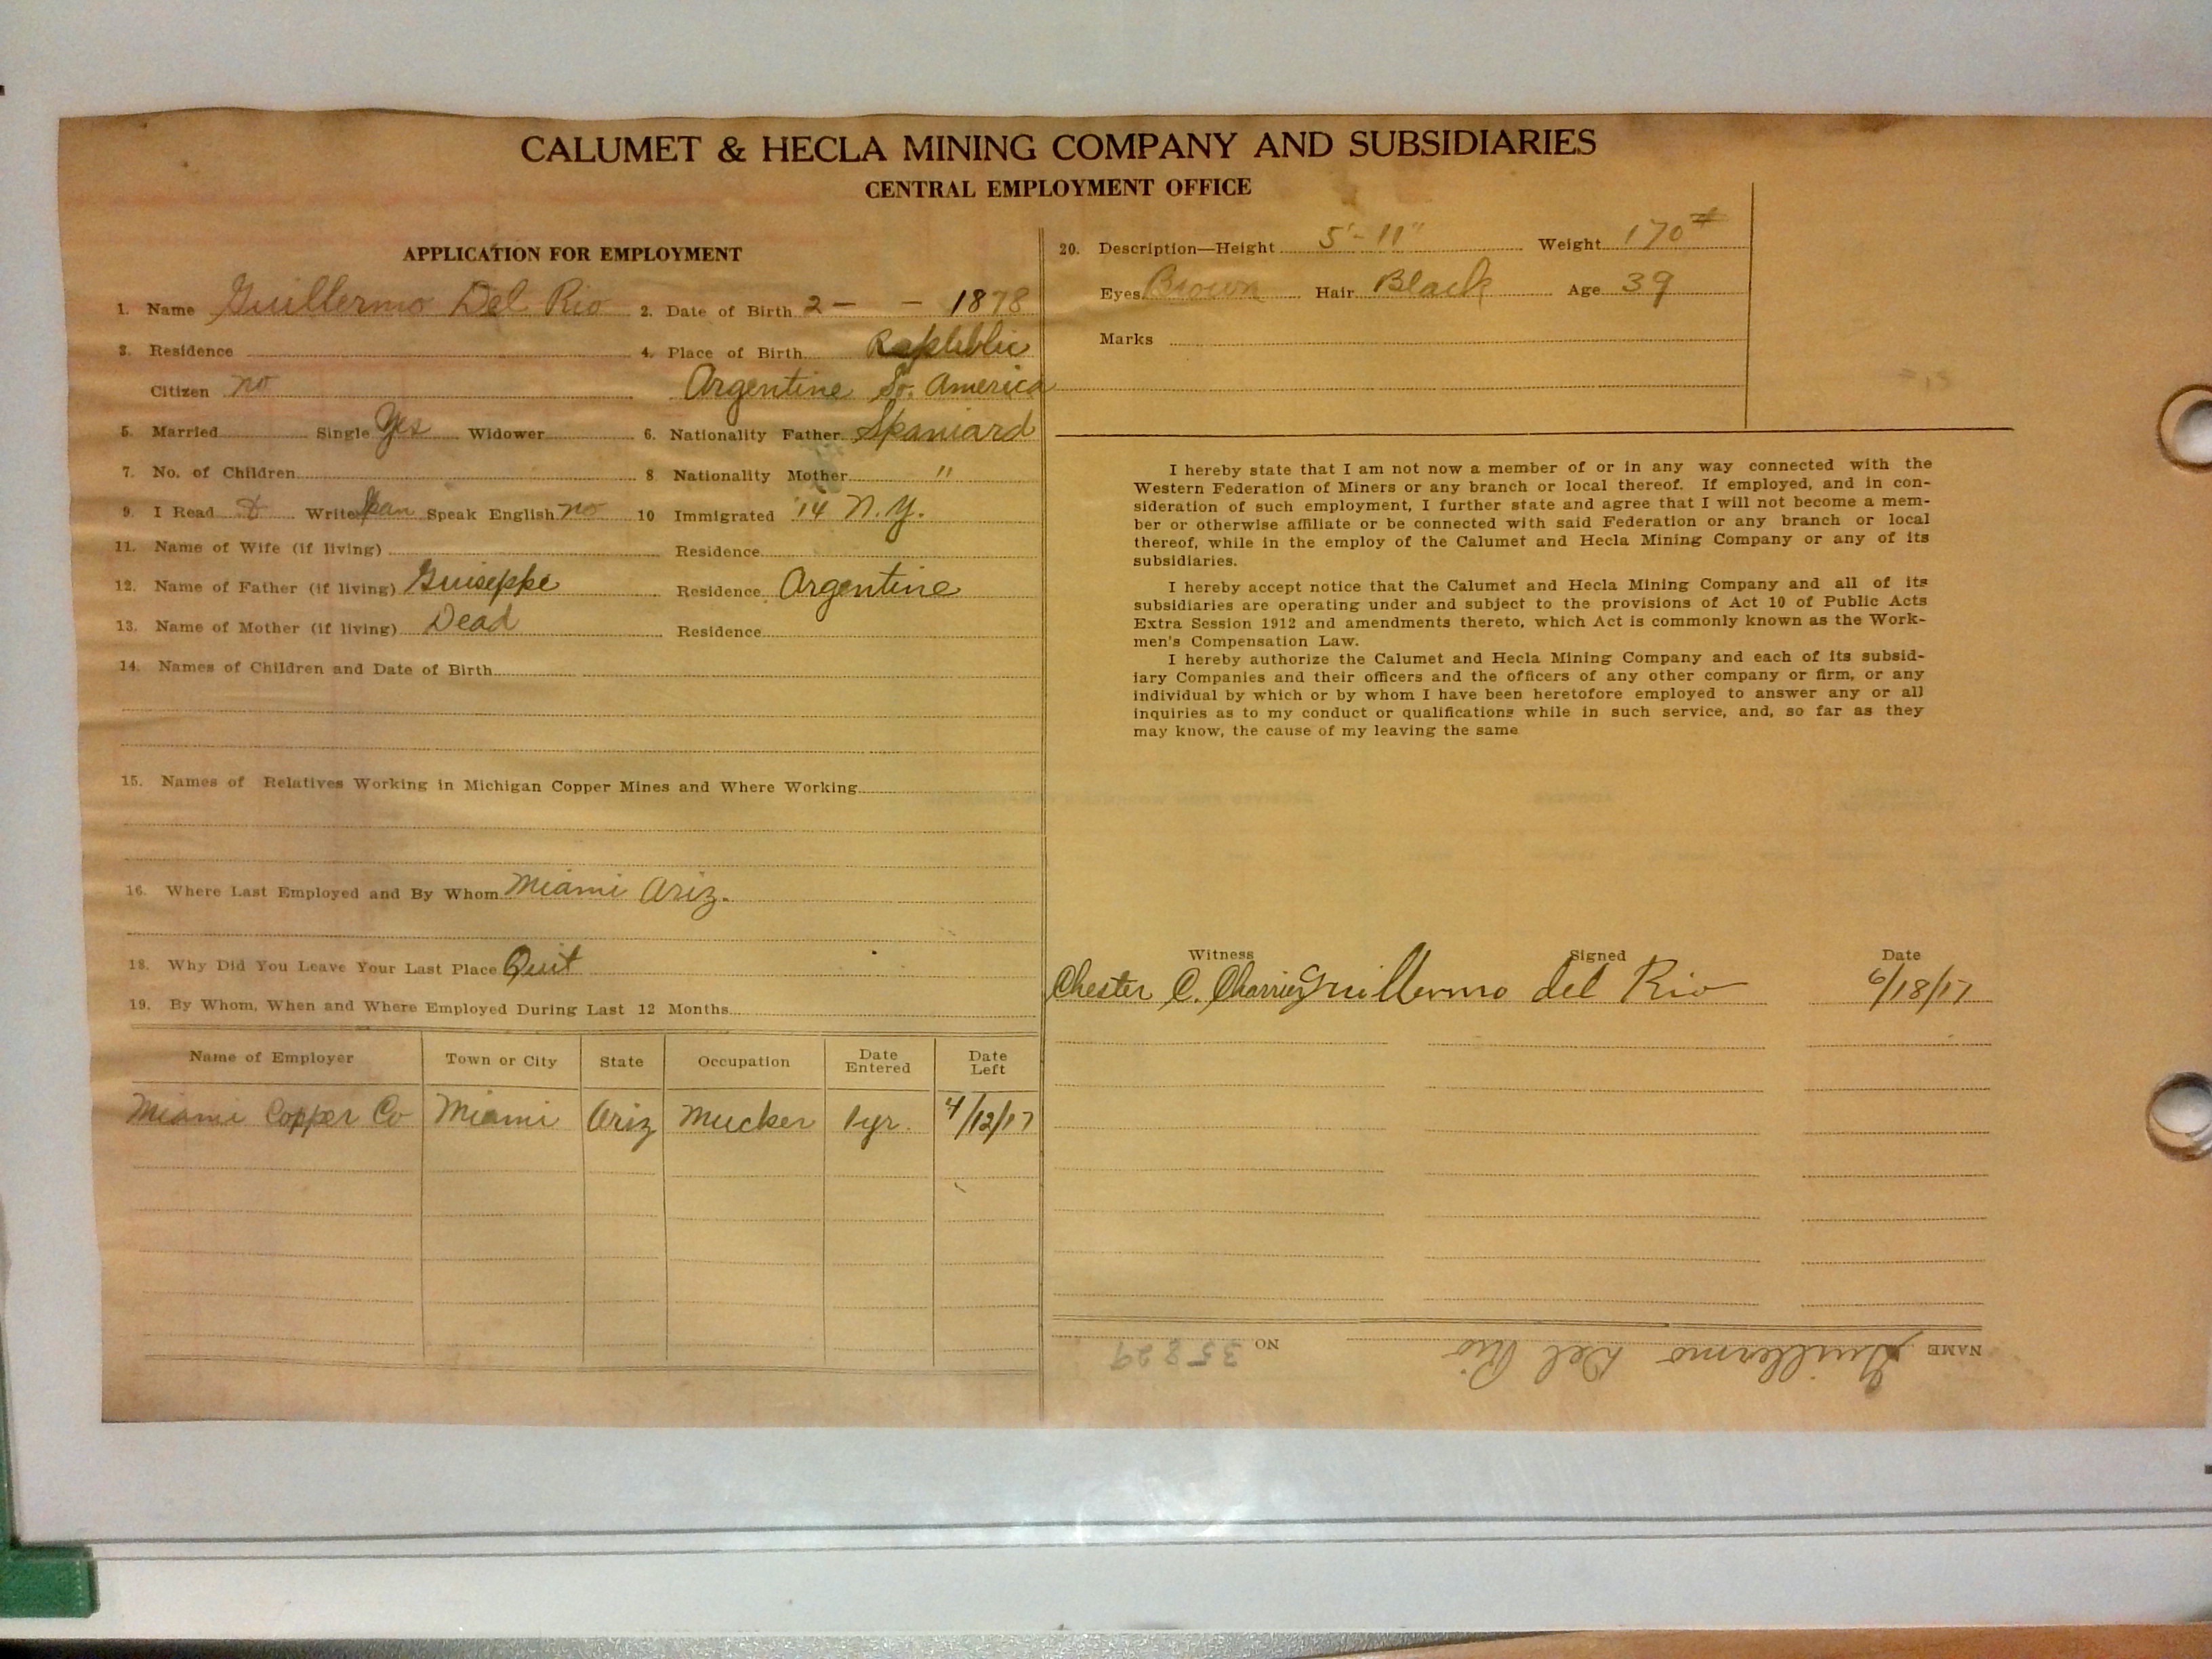 CALUMET & HECLA MINING COMPANY AND SUBSIDIARIES
CENTRAL EMPLOYMENT OFFICE
APPLICATION FOR EMPLOYMENT
1. Name Guillermo Del Rio 2. Date of Birth 2 — — 1878
3. Residence 4. Place of Birth Rapleblic
Citizen no Argentine So. America
5. Married Single Yes Widower 6. Nationality Father Spaniard
7. No. of Children 8 Nationality Mother "
9. I Read & Write Span Speak English no 10 Immigrated '14 N.Y.
11. Name of Wife (if living) Residence
12. Name of Father (if living) Guiseppe Residence Argentine
13. Name of Mother (if living) Dead Residence
14. Names of Children and Date of Birth
15. Names of Relatives Working in Michigan Copper Mines and Where Working
16. Where Last Employed and By Whom Miami Ariz.
18. Why Did You Leave Your Last Place Quit
19. By Whom, When and Where Employed During Last 12 Months
Name of Employer Town or City State Occupation Date Entered Date Left
Miami Copper Co Miami Ariz Mucker 1 yr. 4/12/17
20. Description—Height 5'-11" Weight 170#
Eyes Brown Hair Black Age 39
Marks
I hereby state that I am not now a member of or in any way connected with the
Western Federation of Miners or any branch or local thereof. If employed, and in con-
sideration of such employment, I further state and agree that I will not become a mem-
ber or otherwise affiliate or be connected with said Federation or any branch or local
thereof, while in the employ of the Calumet and Hecla Mining Company or any of its
subsidiaries.
I hereby accept notice that the Calumet and Hecla Mining Company and all of its
subsidiaries are operating under and subject to the provisions of Act 10 of Public Acts
Extra Session 1912 and amendments thereto, which Act is commonly known as the Work-
men's Compensation Law.
I hereby authorize the Calumet and Hecla Mining Company and each of its subsid-
iary Companies and their officers and the officers of any other company or firm, or any
individual by which or by whom I have been heretofore employed to answer any or all
inquiries as to my conduct or qualifications while in such service, and, so far as they
may know, the cause of my leaving the same
Witness Signed Date
Chester C. Guillermo del Rio 6/18/17
NAME Guillermo Del Rio NO 35829